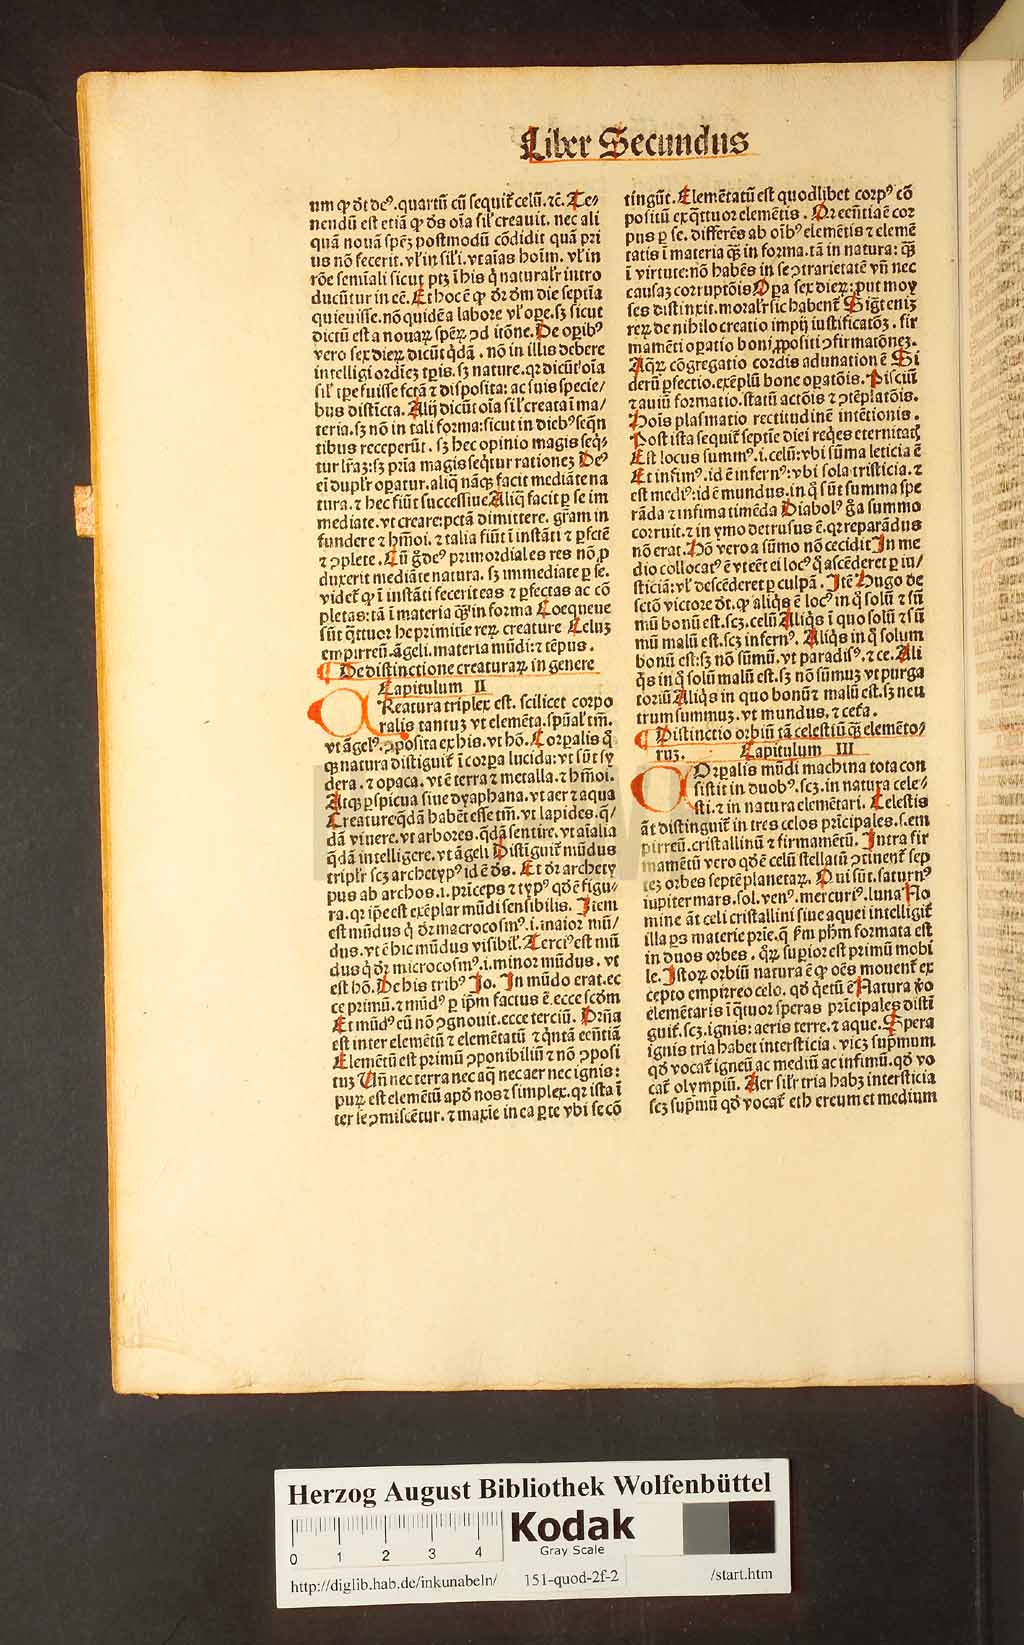 Liber Secundus
um ꝙ dt deꝰ. quartū cū sequit̄ celū. ⁊c̄. Te⸗
nendū est etiā ꝙ ds oīa sil̓ creauit. nec ali
quā nouā spēꝫ postmodū cōdidit quā pri
us nō fecerit. vl̓ in sil̓i. vt aīas hoīm. vl̓ in
rōe semīali sicut ptꝫ ī his q̄ natural̓r intro
ducūtur in eē. Et hoc ē ꝙ dr dm̄ die septīa
quieuisse. nō quidē a labore vl̓ oꝑe. sꝫ sicut
dictū est a nouaꝝ spēꝝ ↄditōne. De oꝑibꝰ
vero sex dieꝝ dicūt q̄dā. nō in illis debere
intelligi ordīeꝫ tp̄is. sꝫ nature. qꝛ dicūt oīa
sil̓ tꝑe fuisse fctā ⁊ disposita: ac suis specie/
bus disticta. Alij dicūt oīa sil̓ creata ī ma/
teria. sꝫ nō in tali forma: sicut in diebꝰ seqn̄
tibus receperūt. sꝫ hec opinio magis seq̄⸗
tur lr̄aꝫ: sꝫ pria magis seq̄tur rationeꝫ Deꝰ
ei dupl̓r oꝑatur. aliq̄ nāqꝫ facit mediāte na
tura. ⁊ hec fiūt successiue Aliq̄ facit ꝑ se im
mediate. vt creare: pctā dimittere. gr̄am in
fundere ⁊ hm̄oi. ⁊ talia fiūt ī instāti ⁊ ꝑfcte
⁊ ↄplete. Cū g̊ deꝰ primordiales res nō ꝓ
duxerit mediāte natura. sꝫ immediate ꝑ se.
videt̄ ꝙ ī instāti fecerit eas ⁊ ꝑfectas ac cō
pletas: tā ī materia qꝫ̄ in forma Coequeue
sūt q̄ttuor he primitie reꝝ creature Celuꝫ
empirreū. āgeli. materia mūdi: ⁊ tēpus.
¶ De distinctione creaturaꝝ in genere
Capitulum II
CReatura triplex est. scilicet corpo
ralis tantuꝫ vt elemēta. spūal̓ tm̄.
vt āgelꝰ. ↄposita ex his. vt hō. Corꝑalis q̄
qꝫ natura distiguit̄ ī corꝑa lucida: vt sūt sy
dera. ⁊ opaca. vt ē terra ⁊ metalla. ⁊ hm̄oi.
Atqꝫ ꝑspicua siue dyaphana. vt aer ⁊ aqua
Creature q̄dā habēt esse tm̄. vt lapides. q̄/
dā viuere. vt arbores. q̄dā sentire. vt aīalia
q̄dā intelligere. vt āgeli Distīguit̄ mūdus
tripl̓r scꝫ archetypꝰ id ē ds. Et dr archety
pus ab archos. i. prīceps ⁊ typꝰ qd̄ ē figu⸗
ra. qꝛ ip̄e est exēplar mūdi sensibilis. Item
est mūdus q̄ dr macrocosmꝰ. i. maior mū/
dus. vt ē hic mūdus visibil̓. Terciꝰ est mū
dus q̄ dr microcosmꝰ. i. minor mūdus. vt
est hō. De his tribꝰ Jo. In mūdo erat. ec
ce primū. ⁊ mūdꝰ ꝑ ip̄m factus ē. ecce scdm
Et mūdꝰ eū nō ↄgnouit. ecce terciū. Drn̄a
est inter elemētū ⁊ elemētatū ⁊ q̄ntā eēntiā
Elemētū est primū ↄponibiliū ⁊ nō ↄposi
tuꝫ Vn̄ nec terra nec aq̄ nec aer nec ignis:
puꝝ est elemētū apd̄ nos ⁊ simplex. qꝛ ista ī
ter se ↄmiscētur. ⁊ maxie in ea ꝑte vbi se cō
tingūt. Elemētatū est quodlibet corpꝰ cō
positū ex q̄ttuor elemētis. Qr eēntia ē cor
pus ꝑ se. differēs ab oībꝰ elemētis ⁊ elemē
tatis ī materia qꝫ̄ in forma. tā in natura: qꝫ̄
ī virtute: nō habēs in se ↄtrarietatē vn̄ nec
causaꝫ corruptōis Opa sex dieꝝ: ꝓut moy
ses distinxit. moral̓r sic habent̄ Sigt̄ eniꝫ
reꝝ de nihilo creatio impij iustificatōꝫ. fir
mamēti oꝑatio boni ꝓpositi ↄfirmatōneꝫ.
Aqꝝ cōgregatio cordis adunatiōē Si
derū ꝑfectio. exēplū bone oꝑatōis. Pisciū
⁊ auiū formatio. statū actōis ⁊ ↄtēplatōis.
Hoīs plasmatio rectitudinē intētionis.
Post ista sequit̄ septīe diei req̄es eternitatꝭ
Est locus summꝰ. i. celū: vbi sūma leticia ē
Et infimꝰ. id ē infernꝰ: vbi sola tristicia. ⁊
est mediꝰ: id ē mundus. in q̄ sūt summa spe
rāda ⁊ infima timēda Diabolꝰ g̊ a summo
corruit. ⁊ in ymo detrusus ē. qꝛ reparādus
nō erat. Hō vero a sūmo nō cecidit In me
dio collocatꝰ ē vt eēt ei locꝰ q̄ ascēderet ꝑ iu/
sticiā: vl̓ descēderet ꝑ culpā. Itē Hugo de
sctō victore dt. ꝙ aliq̄s ē locꝰ in q̄ solū ⁊ sū
mū bonū est. scꝫ. celū Aliq̄s ī quo solū ⁊ sū
mū malū est. scꝫ infernꝰ. Aliq̄s in q̄ solum
bonū est: sꝫ nō sūmū. vt paradisꝰ. ⁊ ce. Ali
q̄s in q̄ solū malū est. sꝫ nō sūmuꝫ vt purga
toriū Aliq̄s in quo bonū ⁊ malū est. sꝫ neu
trum summuꝫ. vt mundus. ⁊ cetā.
¶ Distinctio orbiū tā celestiū qꝫ̄ elemēto⸗
ruꝫ. Capitulum III
COrꝑalis mūdi machina tota con
sistit in duobꝰ. scꝫ. in natura cele⸗
sti. ⁊ in natura elemētari. Celestis
āt distinguit̄ in tres celos prīcipales. s. em
pirreū. cristallinū ⁊ firmamētū. Intra fir
mamētū vero qd̄ ē celū stellatū ↄtinent̄ sep
teꝫ orbes septē planetaꝝ. Qui sūt. saturnꝰ
iupiter mars. sol. venꝰ. mercuriꝰ. luna No
mine āt celi cristallini siue aquei intelligit̄
illa ꝑs materie prīe. q̄ ẜm ph̄m formata est
in duos orbes. qꝝ suꝑior est primū mobi
le. Istoꝝ orbiū natura ē ꝙ oēs mouent̄ ex
cepto empirreo celo. qd̄ q̄etū ē Natura ꝟo
elemētaris ī q̄tuor speras prīcipales distī
guit̄. scꝫ. ignis: aeris terre. ⁊ aque. Spera
ignis tria habet intersticia. vicꝫ sup̄mum
qd̄ vocat̄ igneū ac mediū ac infimū. qd̄ vo
cat̄ olympiū. Aer sil̓r tria habꝫ intersticia
scꝫ sup̄mū qd̄ vocat̄ ethereum et medium
Herzog August Bibliothek Wolfenbüttel
Kodak
Gray Scale
0 1 2 3 4
http://diglib.hab.de/inkunabeln/ 151-quod-2f-2 /start.htm